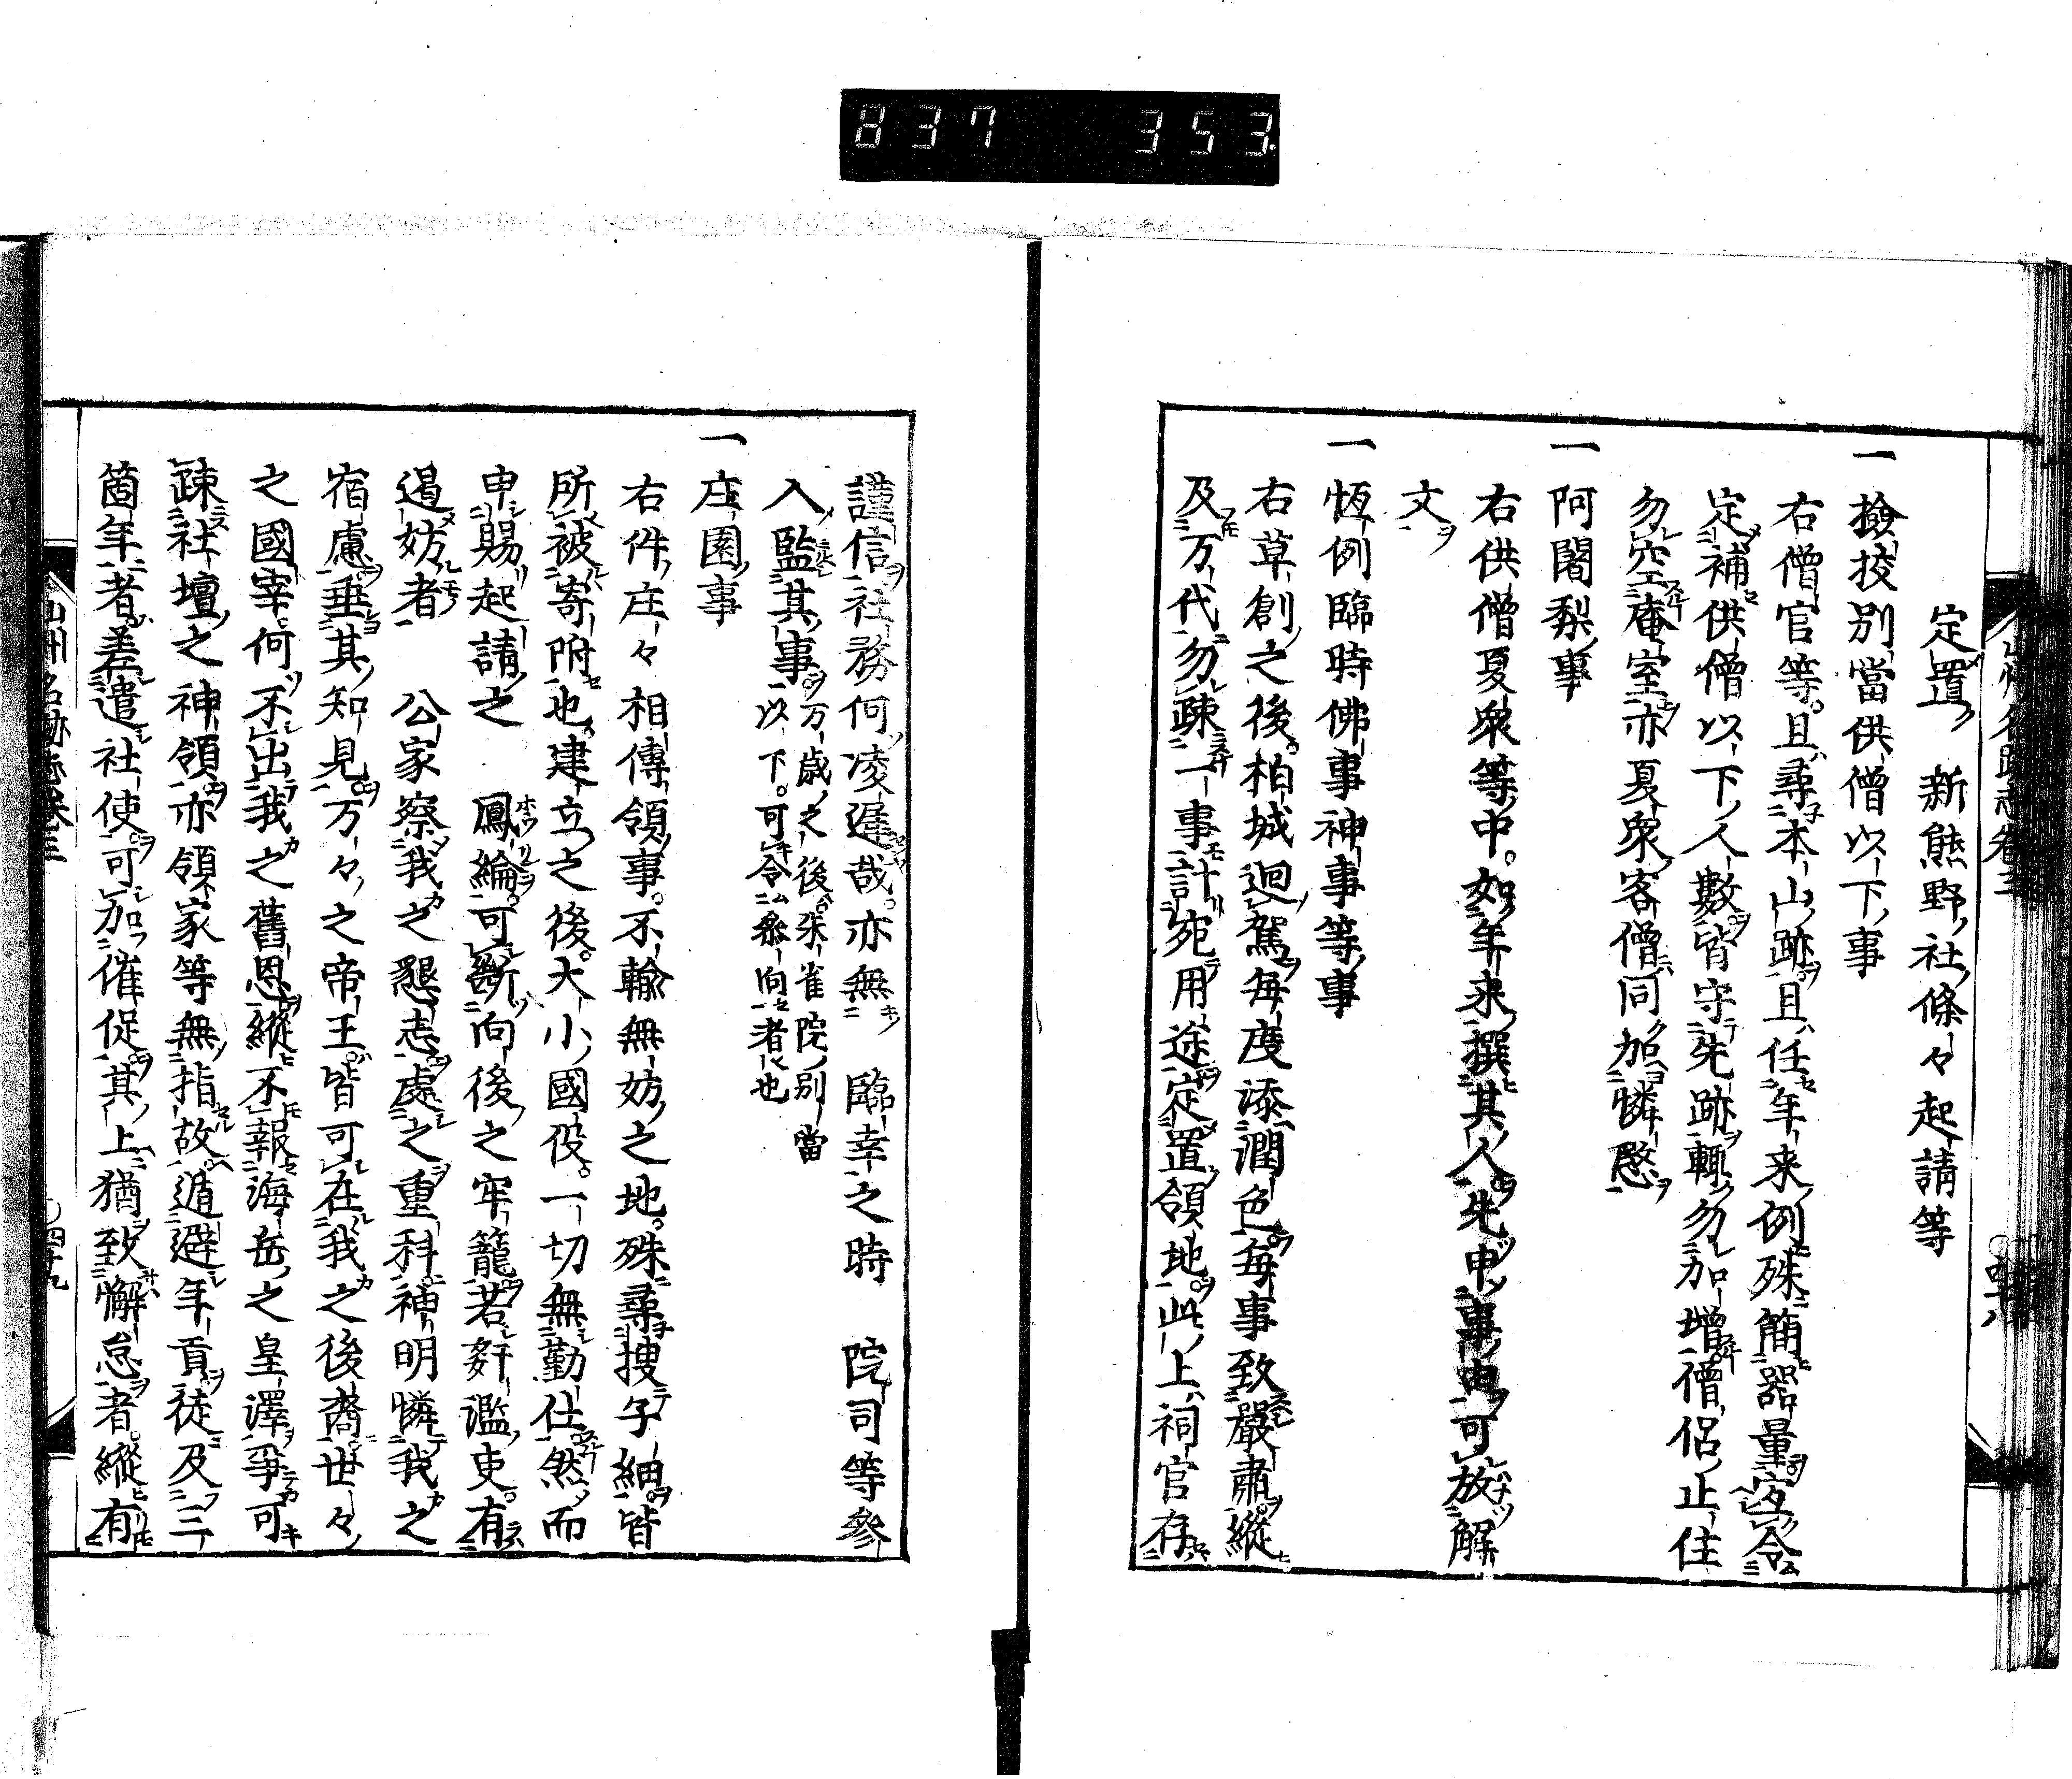 837 353
定置新熊野社條々起請等
一撿挍別當供僧以下事
右僧官等且尋本山跡且任年来例殊簡器量宜令
定補供僧以下人數皆守先跡輙勿加増僧侶止住
勿空庵室亦夏衆客僧同加憐愍
一阿闍梨事
右供僧夏衆等中如年来撰其人先申事由可放解
文
一恆例臨時佛事神事等事
右草創之後柏城迴駕毎度添潤色毎事致嚴肅縱
及万代勿疎一事計宛用途定置領地此上祠官存
謹信社務何凌遲哉亦無臨幸之時院司等參
入監其事万歳之後朱雀院別當
以下可令參向者也
一庄園事
右件庄々相傳領事不輸無妨之地殊尋搜子細皆
所被寄附也建立之後大小國役一切無勤仕然而
申賜起請之鳳綸可斷向後之牢籠若奸濫吏有
遏妨者公家察我之懇志處之重科神明憐我之
宿慮垂其知見万々之帝王皆可在我之後裔世々
之國宰何不出我之舊恩縱不報海岳之皇澤爭可
疎社壇之神領亦領家等無指故遁避年貢徒及二
箇年者差遣社使可加催促其上猶致懈怠者縱有
山州名跡志卷三
四十九